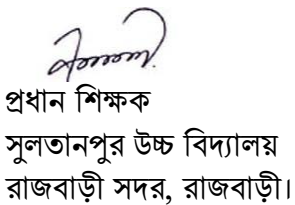 প্রধান শিক্ষক
সুলতানপুর উচ্চ বিদ্যালয়
রাজবাড়ী সদর, রাজবাড়ী।